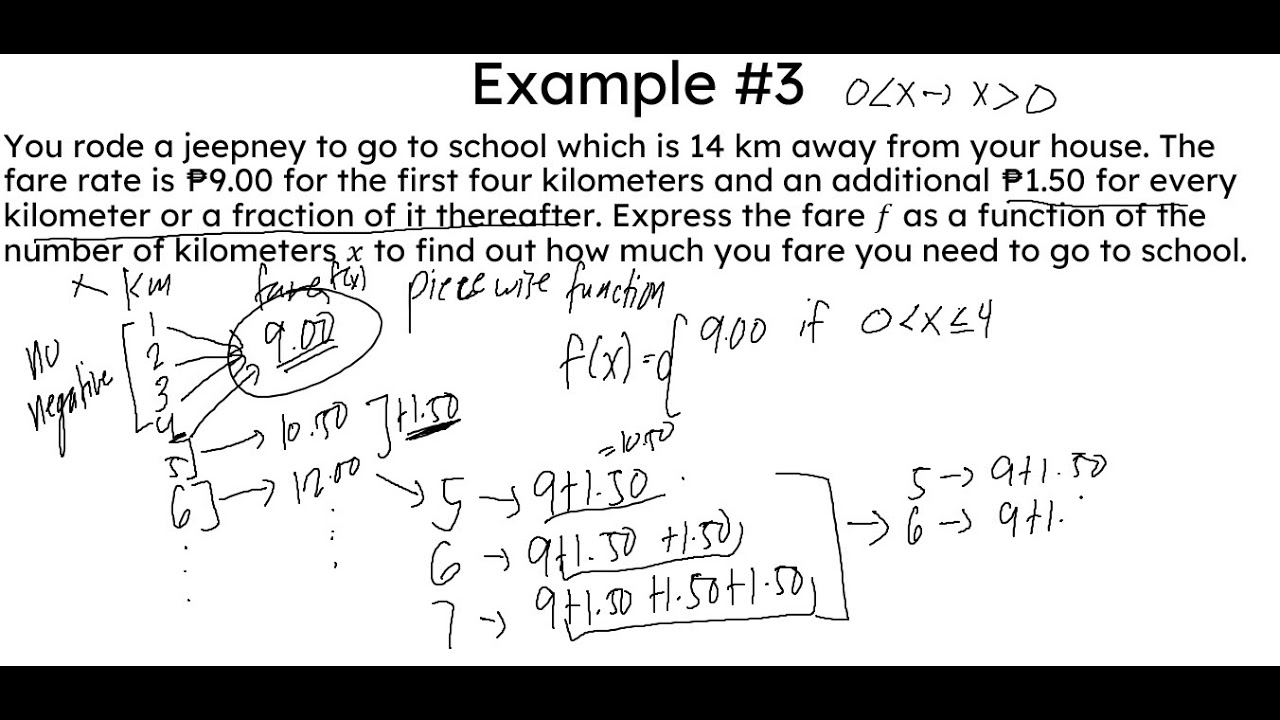 Example #3
0<x→ x>0
You rode a jeepney to go to school which is 14 km away from your house. The
fare rate is ₱9.00 for the first four kilometers and an additional ₱1.50 for every
kilometer or a fraction of it thereafter. Express the fare f as a function of the
number of kilometers x to find out how much you fare you need to go to school.
x km fare f(x) piecewise function
no negative
1
2
3
4
9.00
f(x)={ 9.00 if 0<x≤4
5] → 10.50 ] +1.50
6] → 12.00
=10.50
5 → 9+1.50
6 → 9+1.50 +1.50
7 → 9+1.50 +1.50+1.50
→
5 → 9+1.50
6 → 9+1.